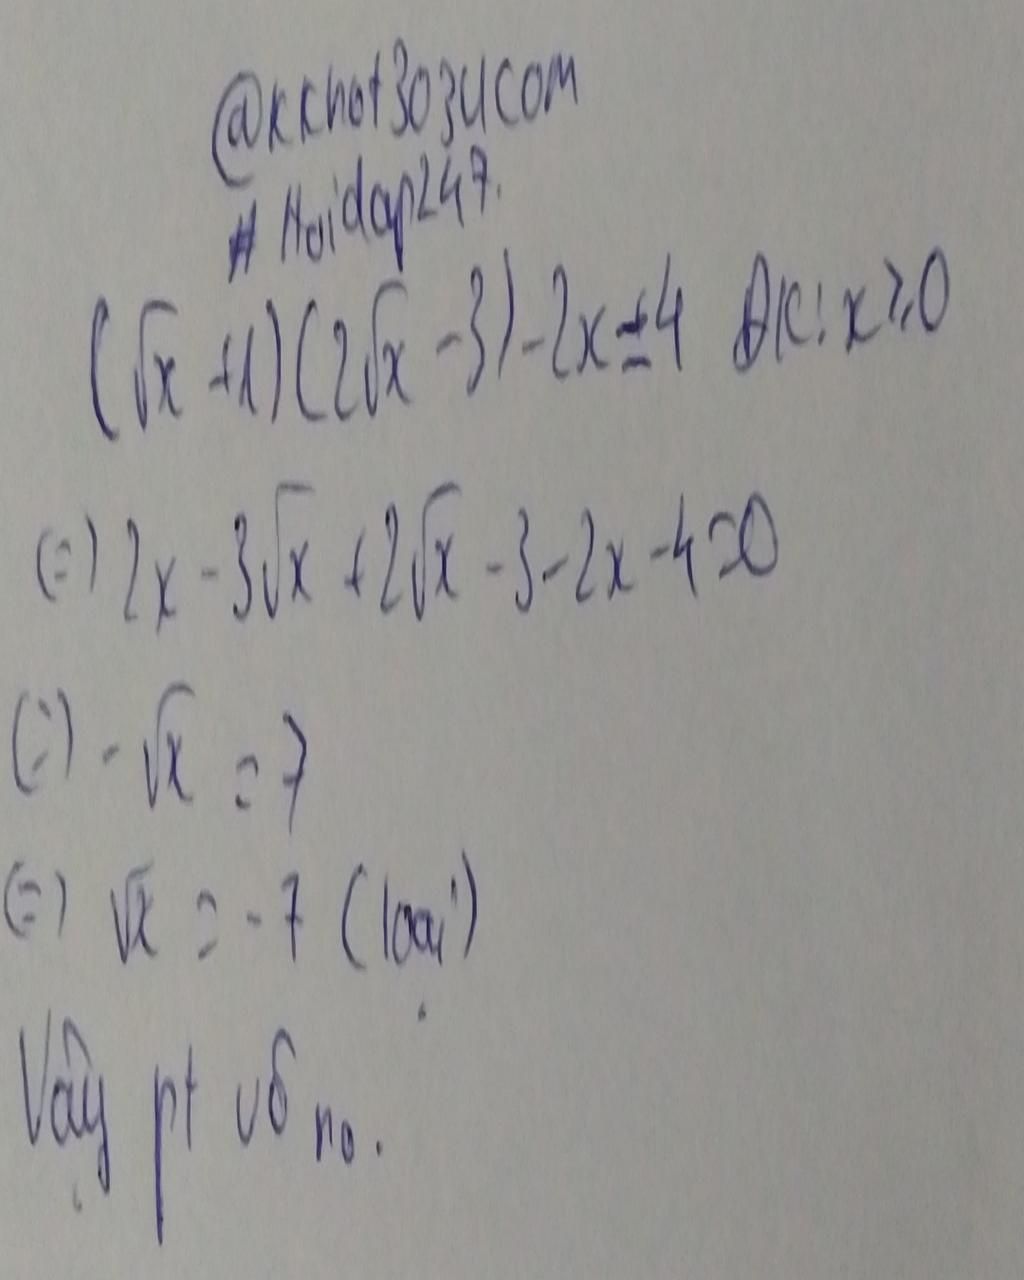 @kkhot3034com
# Hoidap247.
(√x +1)(2√x -3)-2x=4 ĐK: x≥0
(=) 2x -3√x +2√x -3-2x -4=0
(=) -√x = 7
(=) √x = -7 (loại)
Vậy pt vô no.